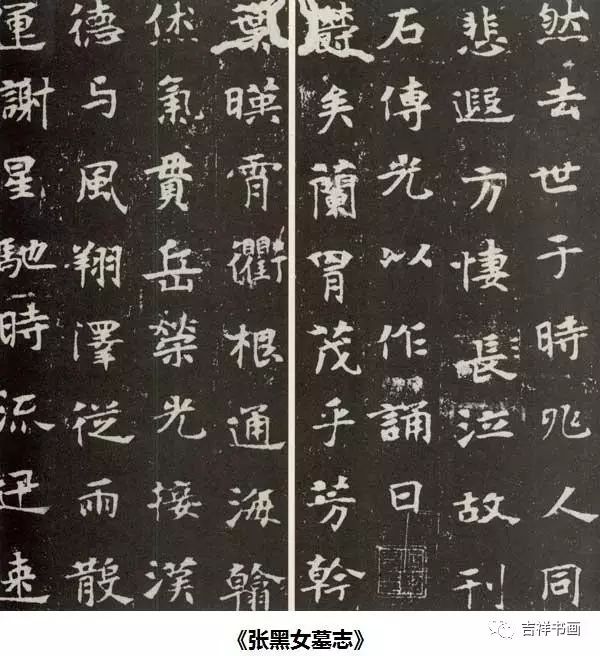 然去世于時兆人同
悲遐方悽長泣故刊
石傳光以作誦曰
欝矣蘭胃茂乎芳幹
葉暎霄衢根通海翰
休氣貫岳榮光接漢
德与風翔澤從雨散
運謝星馳時流迅速
《张黑女墓志》
吉祥书画